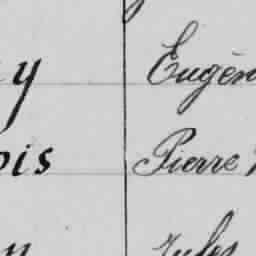 y Eugèn
ois Pierre
n Jules